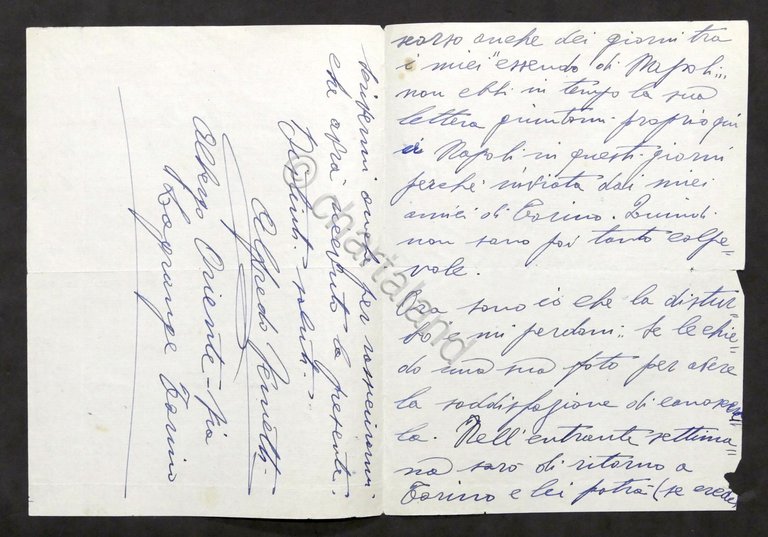 scorso anche dei giorni tra
i miei "essendo di Napoli...
non ebbi in tempo la sua
lettera giuntami proprio qui
a Napoli in questi giorni
perché inviata dai miei
amici di Torino. Quindi
non sono poi tanto colpe=
vole.
Ora sono io che la distur=
bo e mi perdoni.. se le chie=
do una sua foto per avere
la soddisfazione di conoscer=
la. Nell'entrante settima=
na sarò di ritorno a
Torino e lei potrà (se crede)
scrivermi anche per rassicurarmi
che avrà ricevuto la presente.
Distinti saluti.
Alfredo
Albergo Oriente - Via
Lagrange Torino
© chartaland